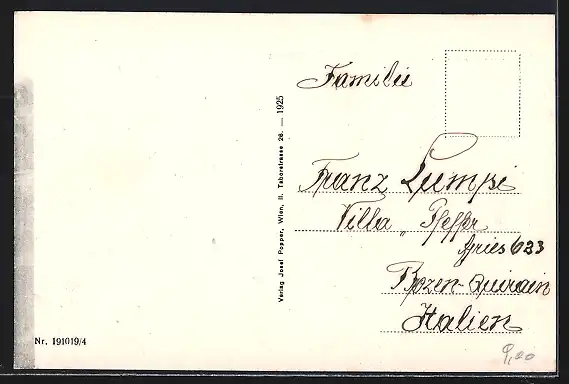 Familie
Franz Lumpi
Villa „Pfeffer
Gries 623
Bozen-Quirain
Italien
Verlag Josef Popper, Wien, II. Taborstrasse 26. — 1925
Nr. 191019/4
9,00